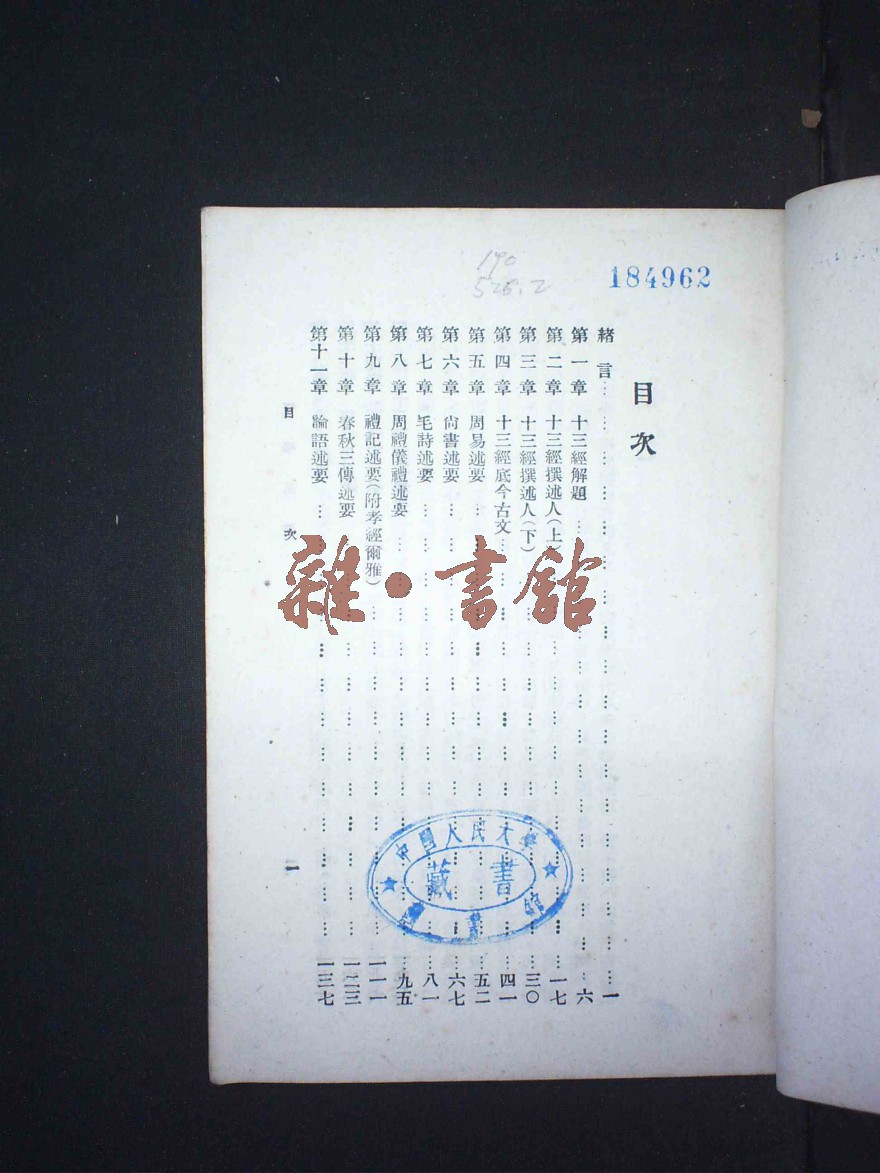 190
526.2
184962
目次
緒言 一
第一章 十三經解題 六
第二章 十三經撰述人(上) 一七
第三章 十三經撰述人(下) 三〇
第四章 十三經底今古文 四一
第五章 周易述要 五二
第六章 尙書述要 六七
第七章 毛詩述要 八一
第八章 周禮儀禮述要 九五
第九章 禮記述要(附孝經爾雅) 一一一
第十章 春秋三傳述要 一二三
第十一章 論語述要 一三七
目次 一
雜·書館
中國人民大學
藏書
圖書館